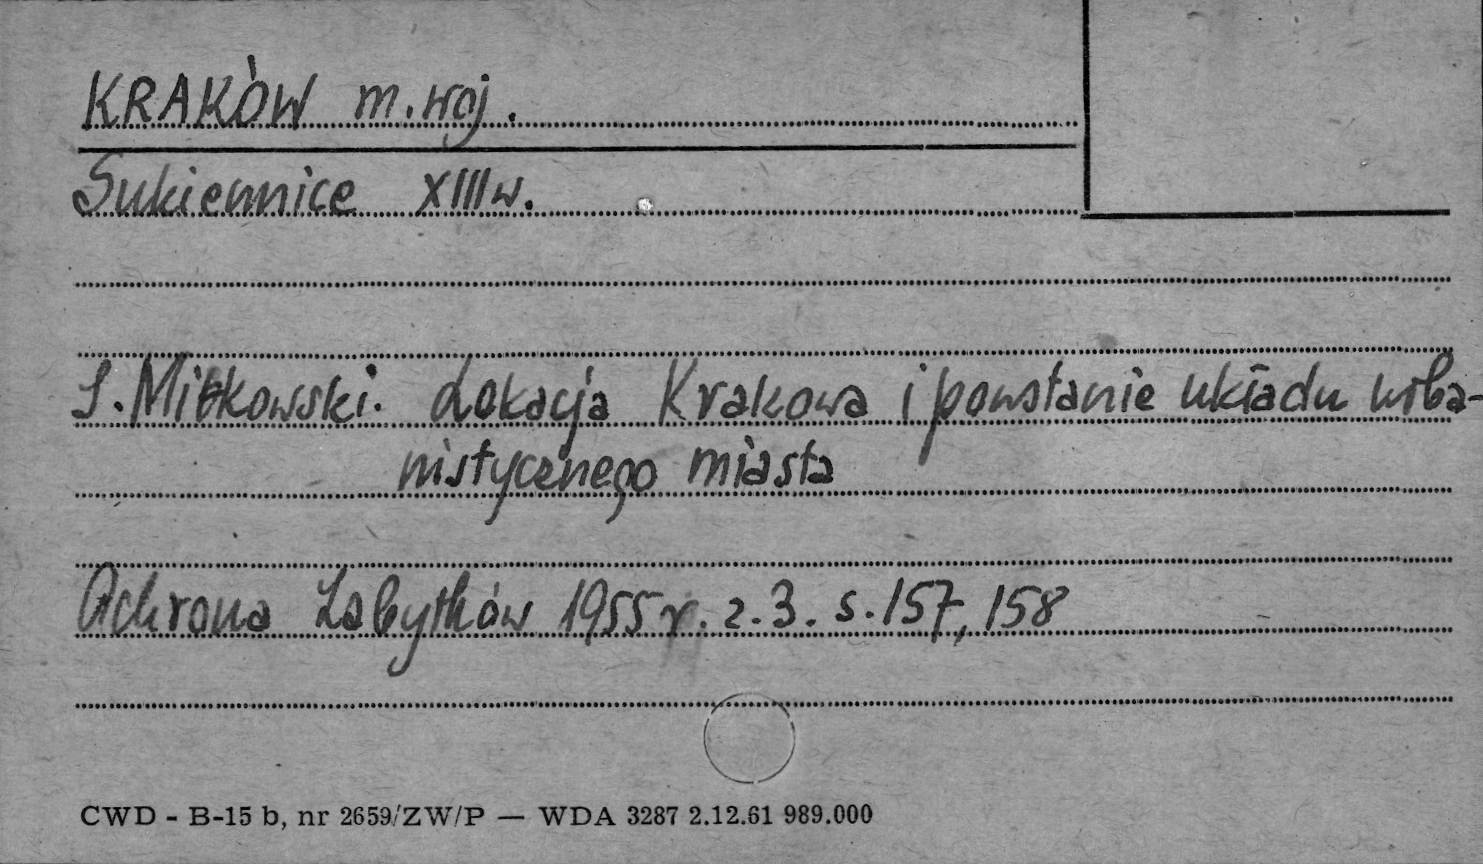 KRAKÓW m. woj.
Sukiennice XIII w.
J. Mitkowski. Lokacja Krakowa i powstanie układu urba-
nistycznego miasta
Ochrona Zabytków 1955 r. z. 3. s. 157, 158
CWD - B-15 b, nr 2659/ZW/P — WDA 3287 2.12.61 989.000